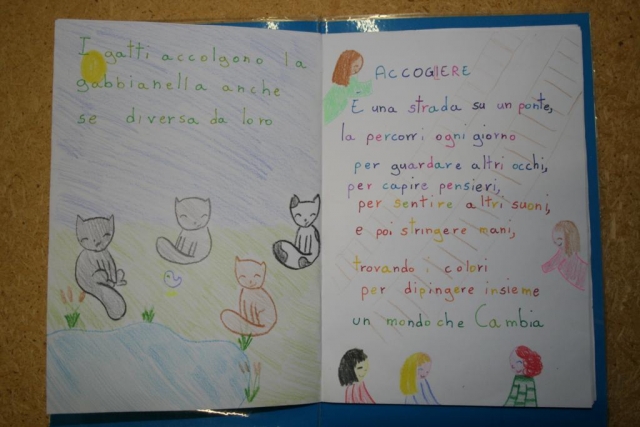 I gatti accolgono la
gabbianella anche
se diversa da loro
ACCOGLIERE
È una strada su un ponte,
la percorri ogni giorno
per guardare altri occhi,
per capire pensieri,
per sentire altri suoni,
e poi stringere mani,
trovando i colori
per dipingere insieme
un mondo che Cambia